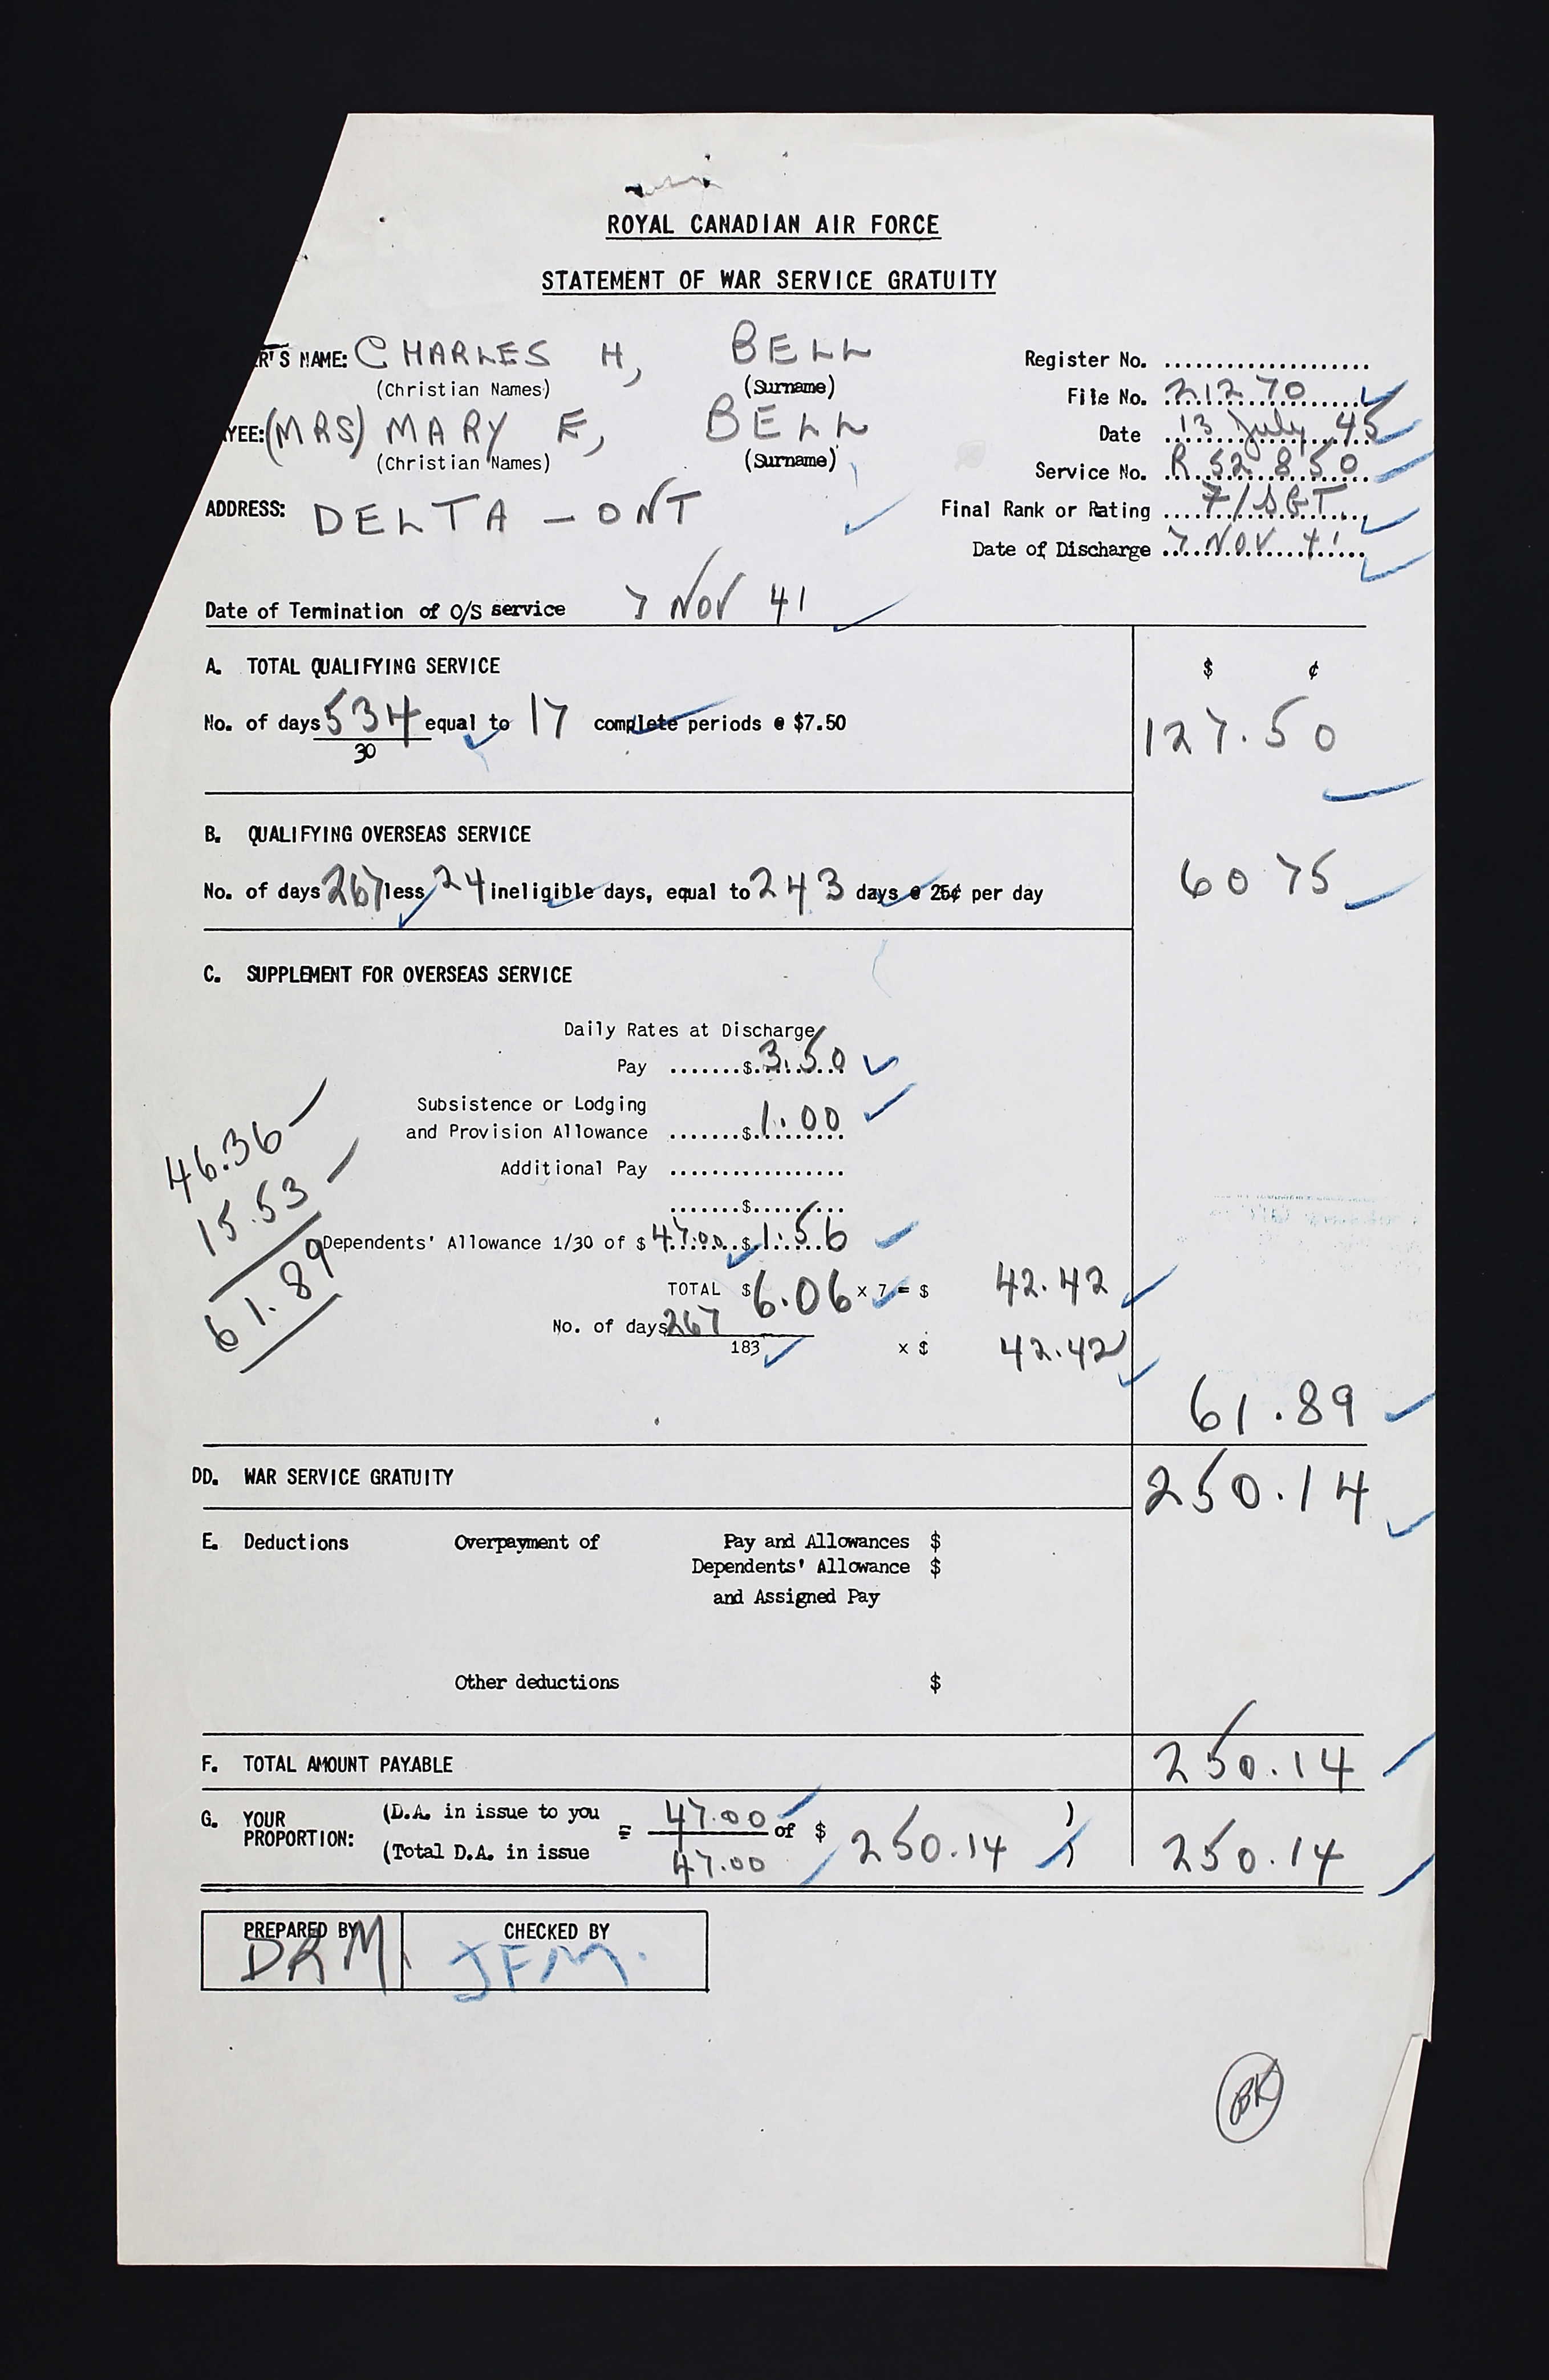 ROYAL CANADIAN AIR FORCE
STATEMENT OF WAR SERVICE GRATUITY
R'S NAME: CHARLES H, BELL
(Christian Names) (Surname)
Register No. ....................
File No. 21270
YEE: (MRS) MARY E, BELL
(Christian Names) (Surname)
Date 13 July 45
Service No. R 52850
ADDRESS: DELTA - ONT
Final Rank or Rating F/SGT
Date of Discharge 7 NOV 41
Date of Termination of O/S service 7 NOV 41
A. TOTAL QUALIFYING SERVICE $ ¢
No. of days 534 equal to 17 complete periods @ $7.50 127.50
30
B. QUALIFYING OVERSEAS SERVICE
No. of days 267 less 24 ineligible days, equal to 243 days @ 25¢ per day 60 75
C. SUPPLEMENT FOR OVERSEAS SERVICE
Daily Rates at Discharge
Pay .......$ 3.50
Subsistence or Lodging
and Provision Allowance .......$ 1.00
Additional Pay .................
.......$.........
46.36
15.53
61.89
Dependents' Allowance 1/30 of $ 47.00 $ 1.56
TOTAL $ 6.06 x 7 = $ 42.42
No. of days 267
183 x $ 42.42
61.89
DD. WAR SERVICE GRATUITY 250.14
E. Deductions Overpayment of Pay and Allowances $
Dependents' Allowance $
and Assigned Pay
Other deductions $
F. TOTAL AMOUNT PAYABLE 250.14
G. YOUR PROPORTION: (D.A. in issue to you = 47.00 of $ 250.14 ) 250.14
(Total D.A. in issue 47.00 )
PREPARED BY CHECKED BY
DRM. JFM.
BK